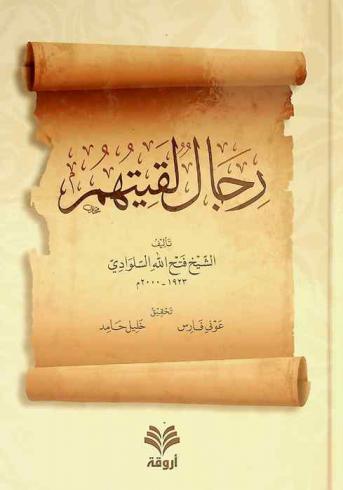 رِجَالٌ لَقِيتُهُمْ
تَأليفُ
الشَّيْخ فَتْح اللّٰه السَّلوَادِيّ
١٩٢٣ - ٢٠٠٠م
تَحْقِيقُ
عَوْني فَارِس خَليل حَامِد
أروقة